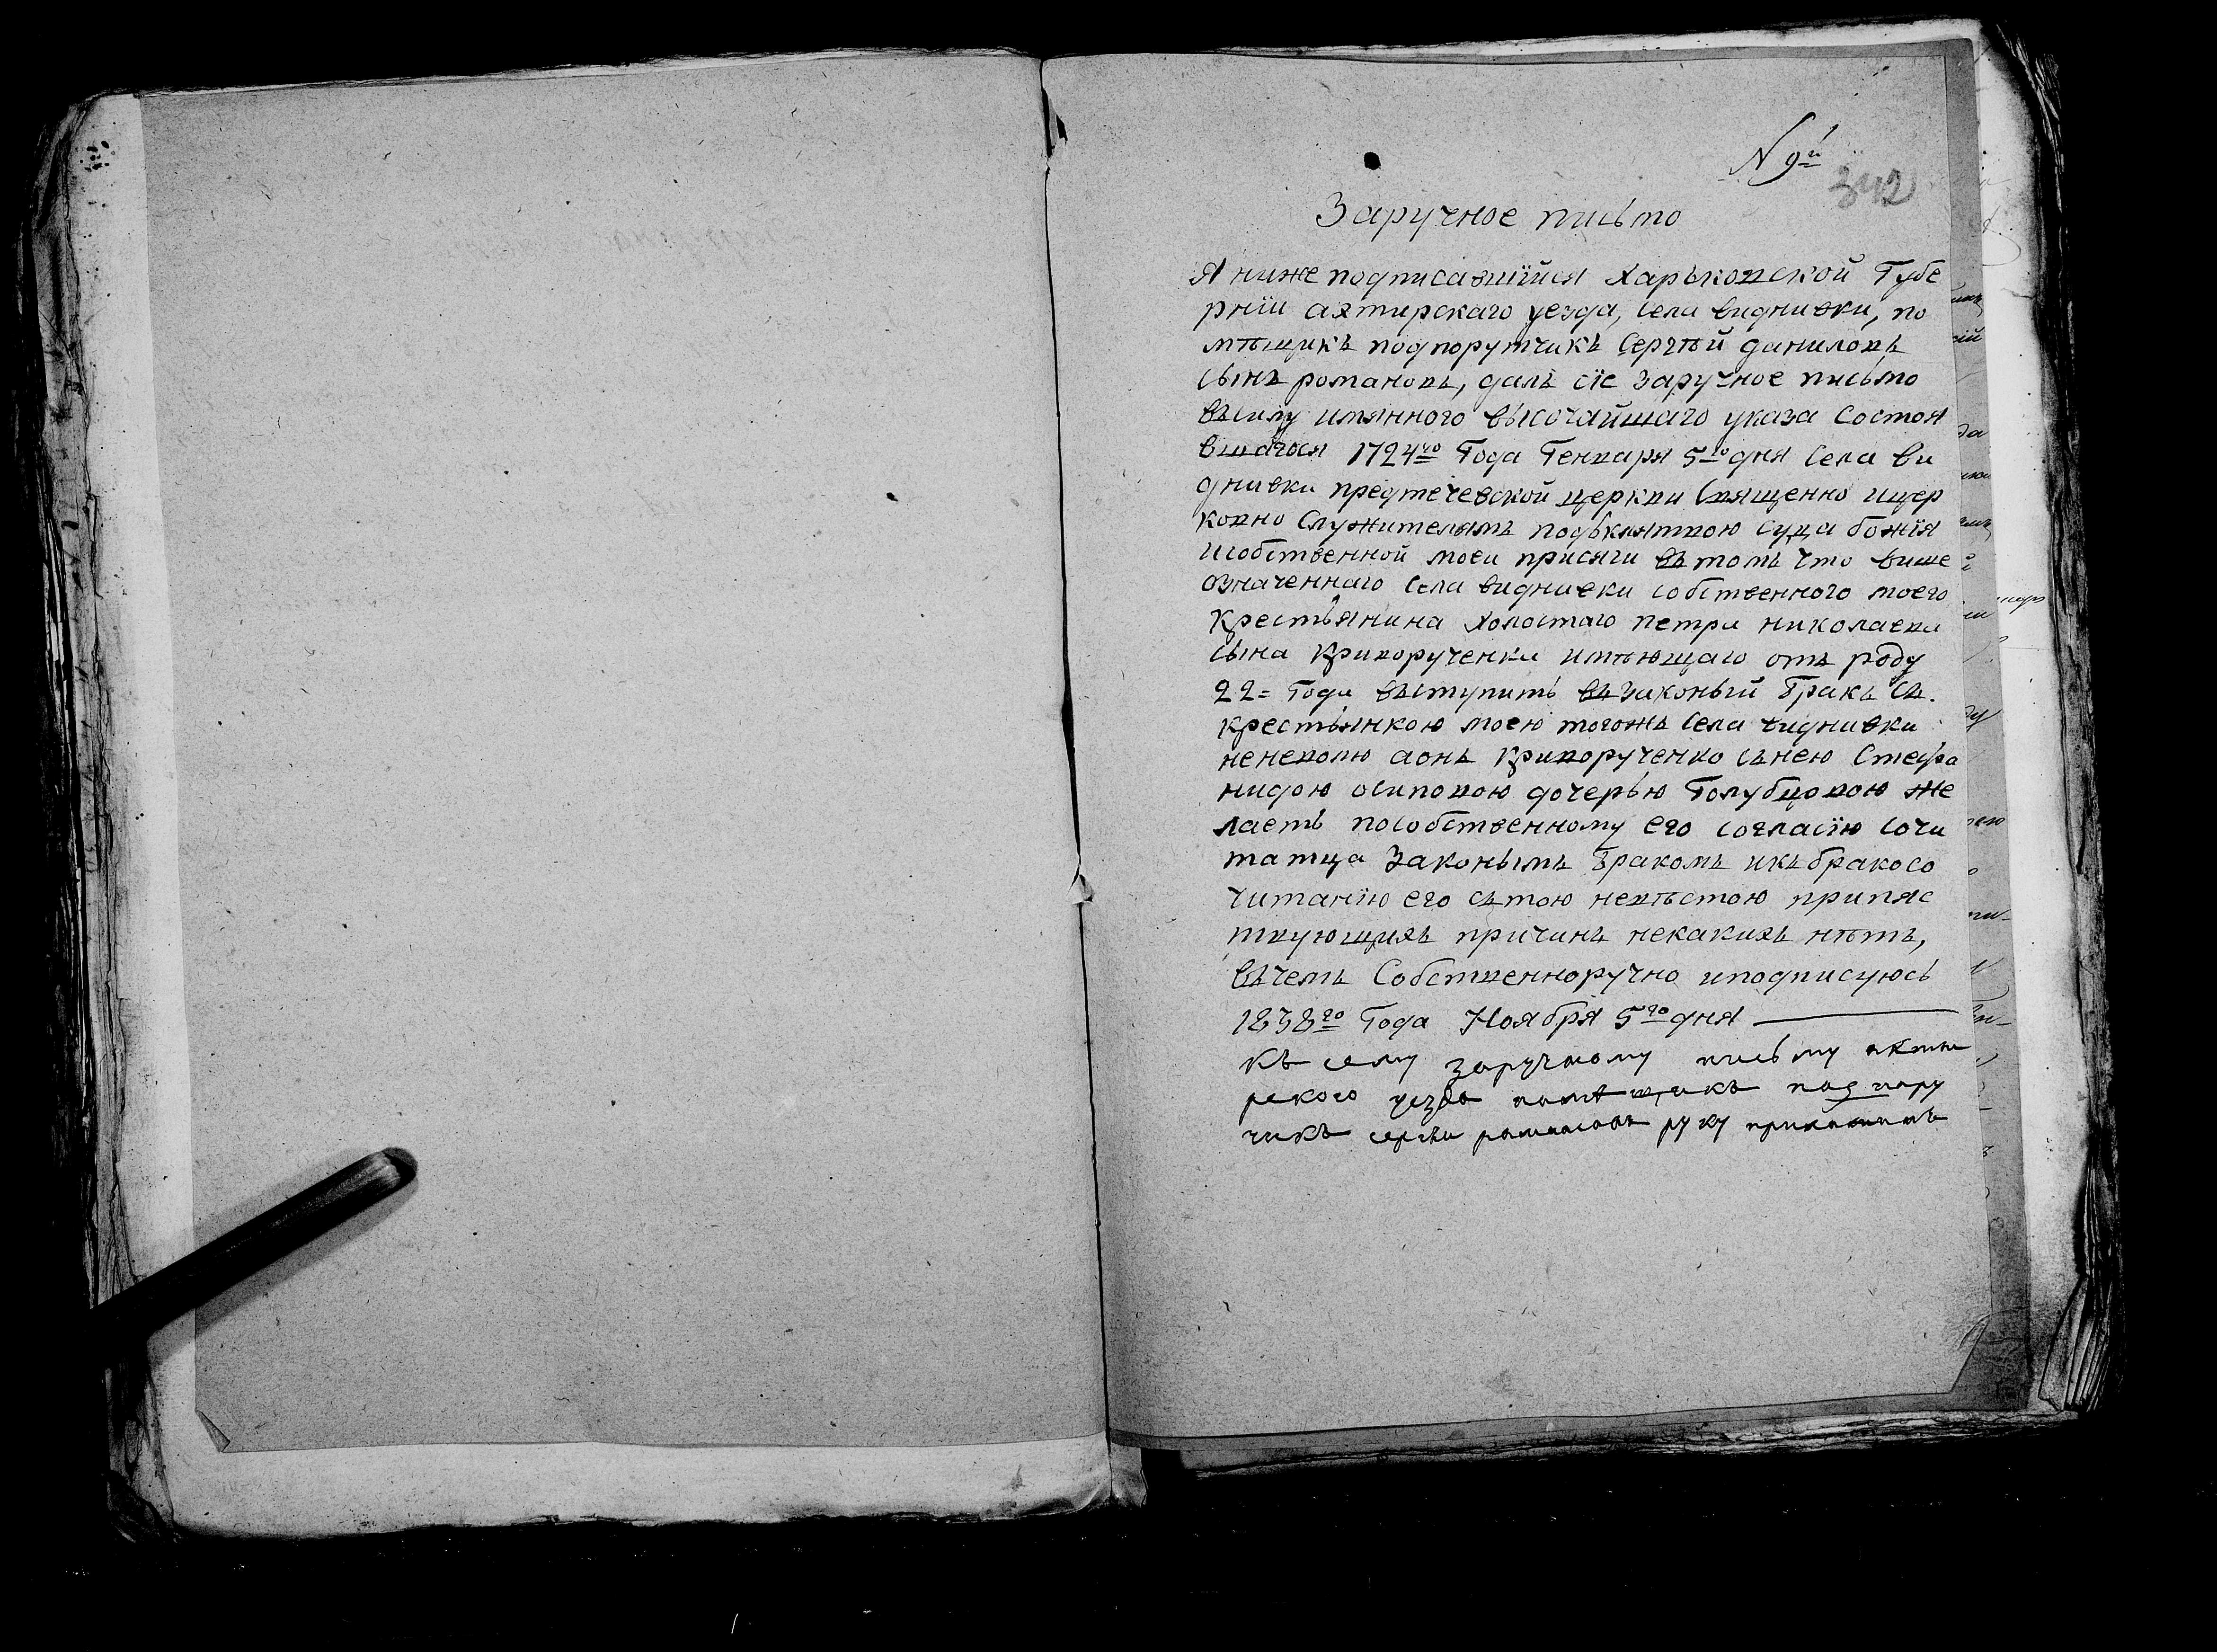 N 9й
342
Заручное письмо
Я ниже подписавшїйся Харьковской Губе
рнїи ахтирскаго уезда, села видневки, по
мѣщикъ подпорутчикъ Сергѣй даниловъ
сынъ романовъ, далъ сїе заручное письмо
въсилу имяннога высочайшаго указа состоя
вшагося 1724го Года Генваря 5го дня села ви
дневки предтечевской церкви Священно ицер
ковно Служителямъ подъклятвою суда божїя
исобственной моеи присяги въ томъ что више
означеннаго села видневки собственного моего
крестьянина холостаго петра николаева
сына криворученка имѣющаго отъ роду
22= года въступить въ законый бракъ съ
крестьянкою моею тогожъ села видневки
неневолю аонъ криворученко сънею Стефа
нидою осиповою дочерью Голубцовою же
лаетъ пособственному его согласїю сочи
татца Законымъ бракомъ икъ бракосо
читанїю его сътою невѣстою припяс
твующихъ причинъ некакихъ нѣтъ,
въчемъ Собственноручно иподписуюсь
1838го Года Ноября 5го дня
къ сему заручному письму ахты
рского уезда помѣщикъ подпору
чикъ сергѣи романовъ руку приложилъ